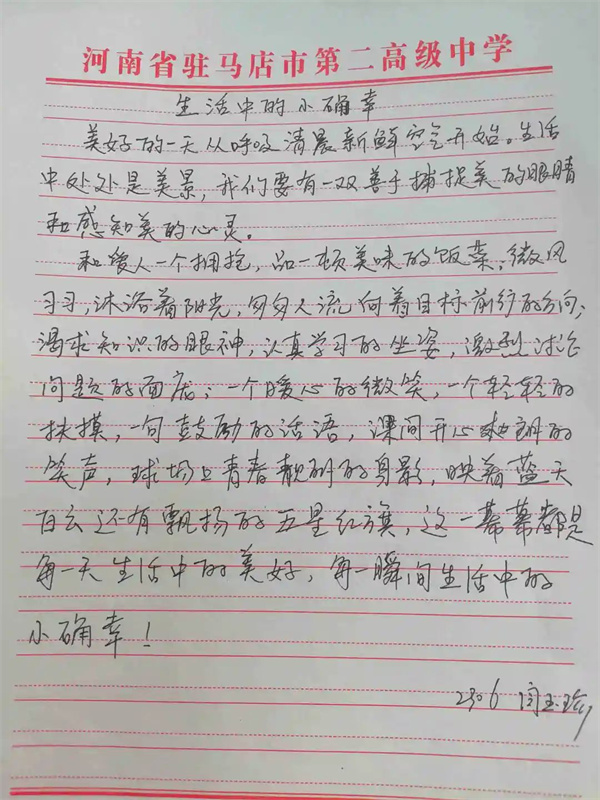 河南省驻马店市第二高级中学
生活中的小确幸
美好的一天从呼吸清晨新鲜空气开始。生活
中处处是美景，我们要有一双善于捕捉美的眼睛
和感知美的心灵。
和爱人一个拥抱，品一顿美味的饭菜；微风
习习，沐浴着阳光，匆匆人流向着目标前行的方向；
渴求知识的眼神，认真学习的坐姿，激烈讨论
问题的面庞；一个暖心的微笑，一个轻轻的
扶摸，一句鼓励的话语，课间开心的
笑声，球场上青春靓丽的身影，映着蓝天
白云还有飘扬的五星红旗，这一幕幕都是
每一天生活中的美好，每一瞬间生活中的
小确幸！
2306 闫玉